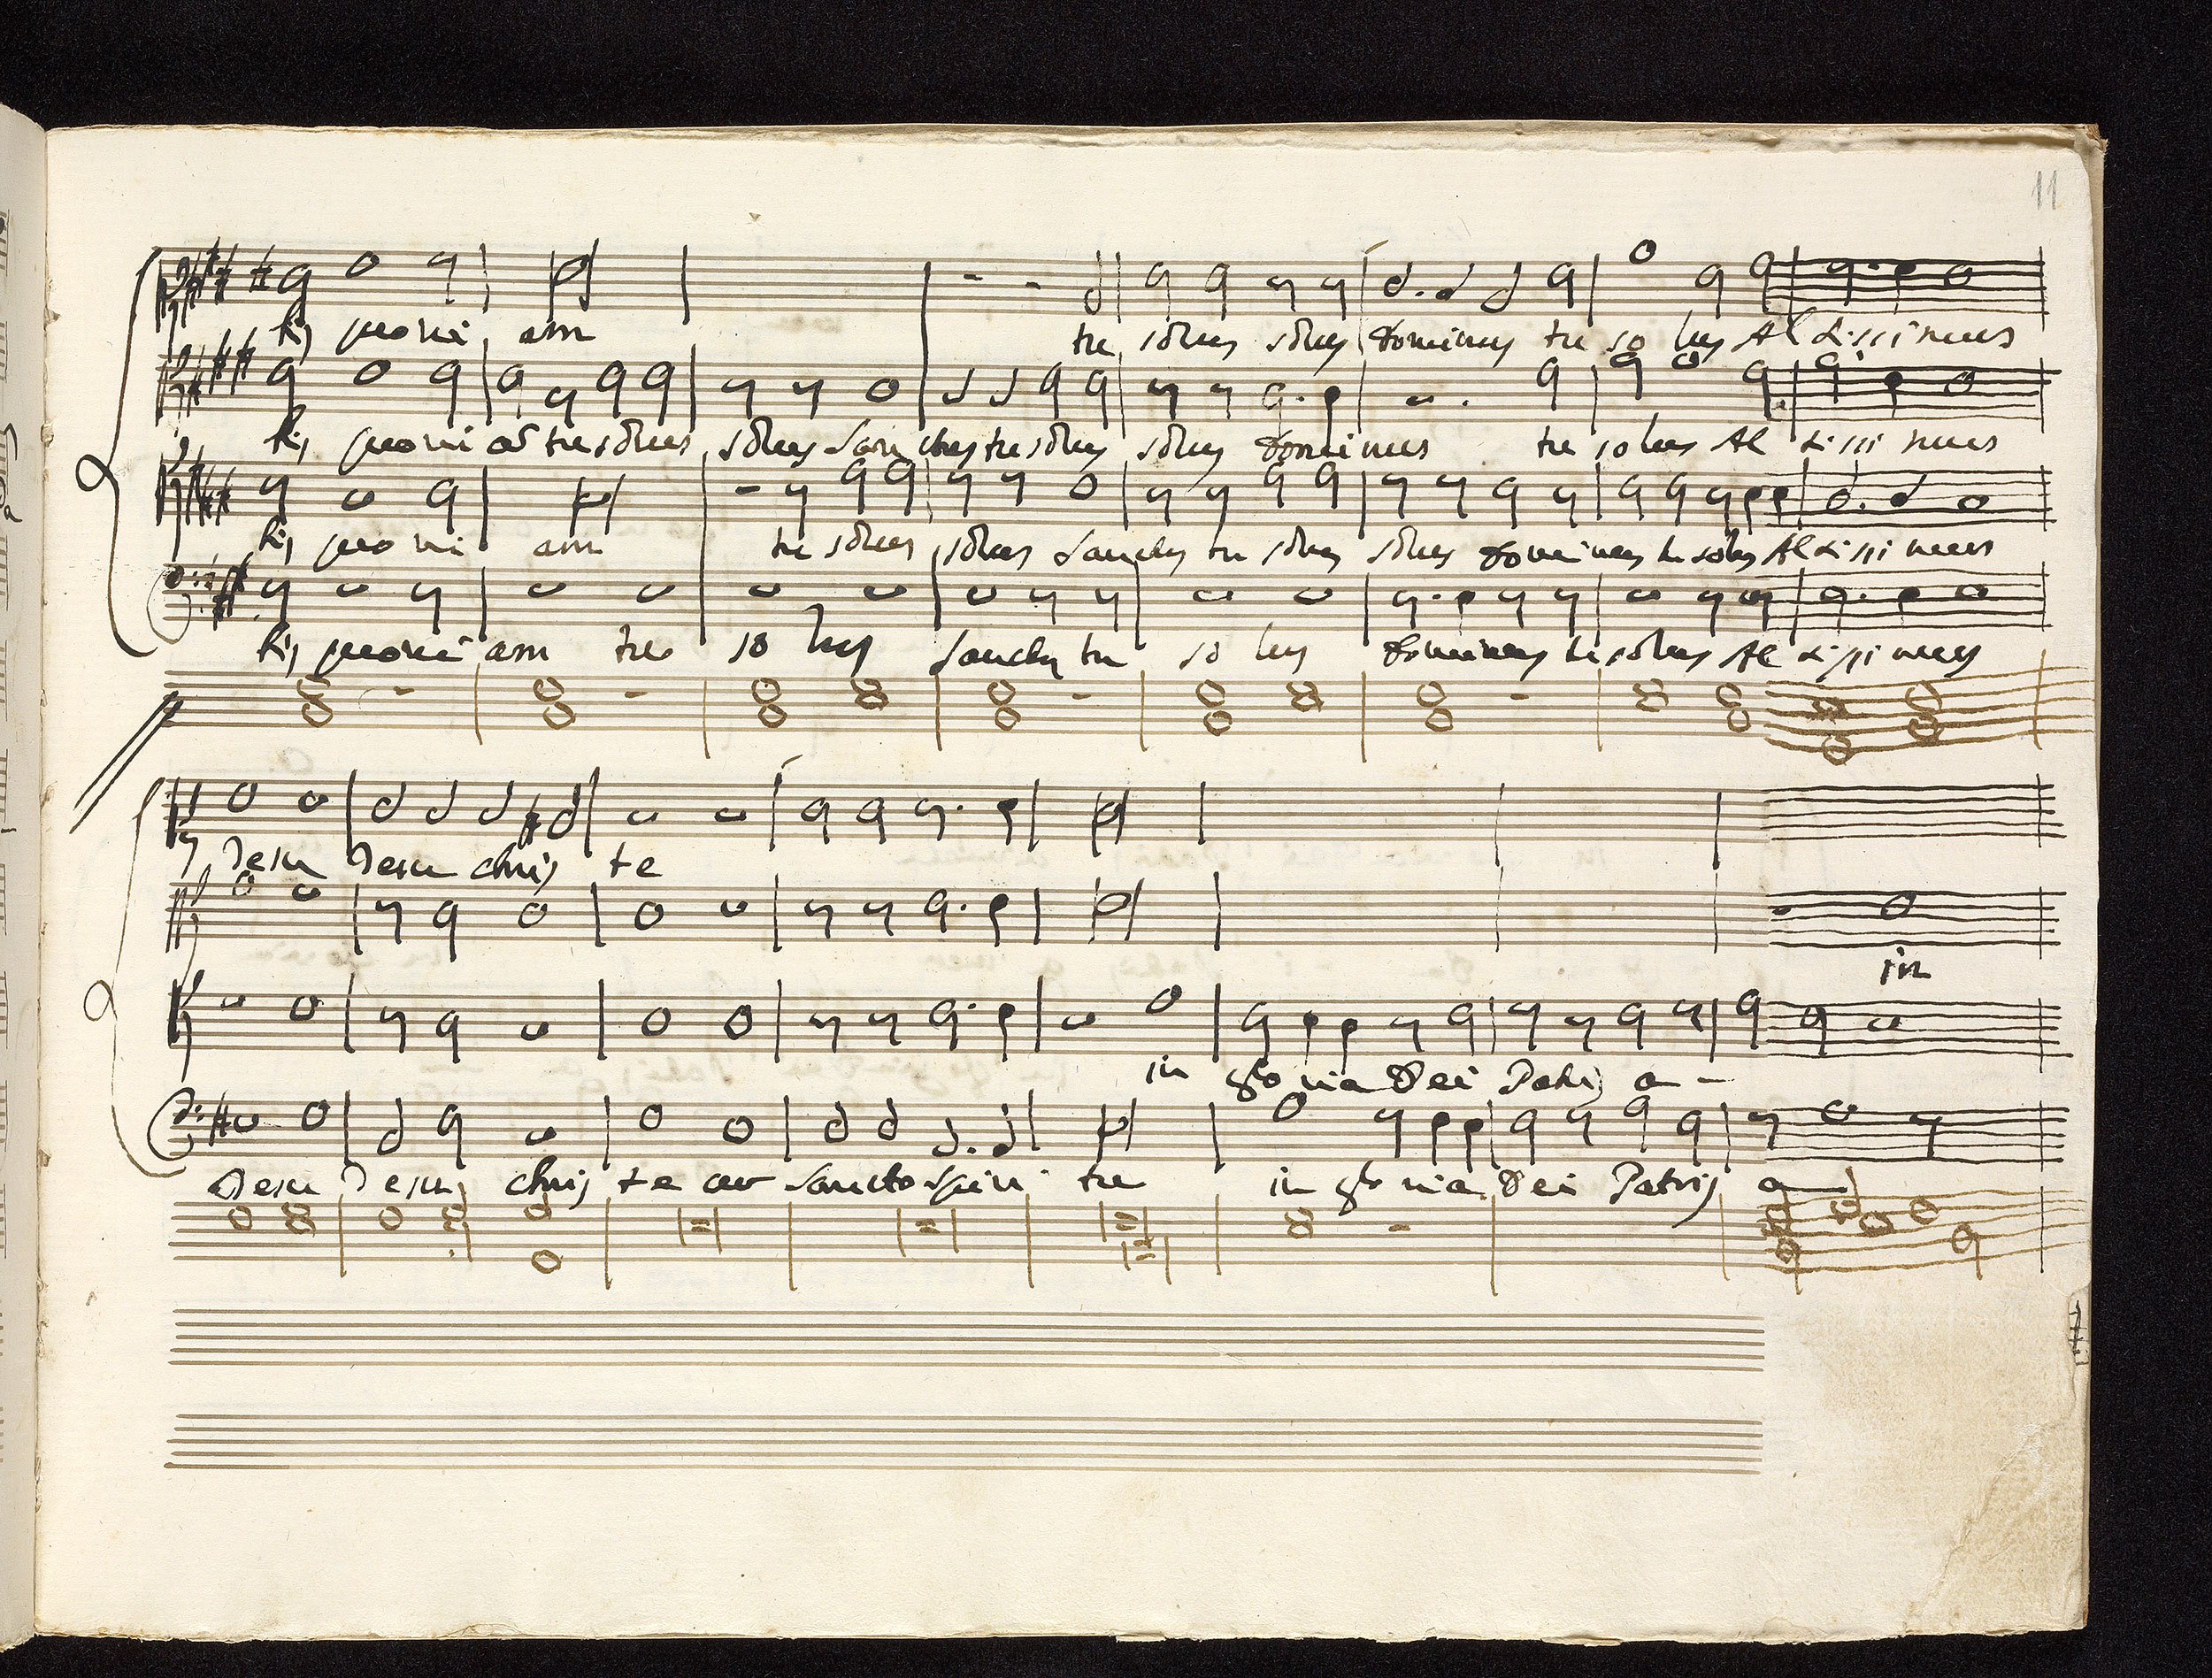 11
bis quoni am tu solus solus Dominus tu so lus Al tissimus
bis quoni ā tu solus solus Sanctus tu solus solus Dominus tu solus Al tissi mus
bis quo ni am tu solus solus Sanctus tu solus solus Dominus tu solus Al tissi mus
bis quoni am tu so lus Sanctus tu so lus Dominus tu solus Al tissi mus
Jesu Jesu chris te
in
in glo ria Dei Patris a -
Jesu Jesu chris te cu Sancto Spiri tu in glo ria Dei Patris a